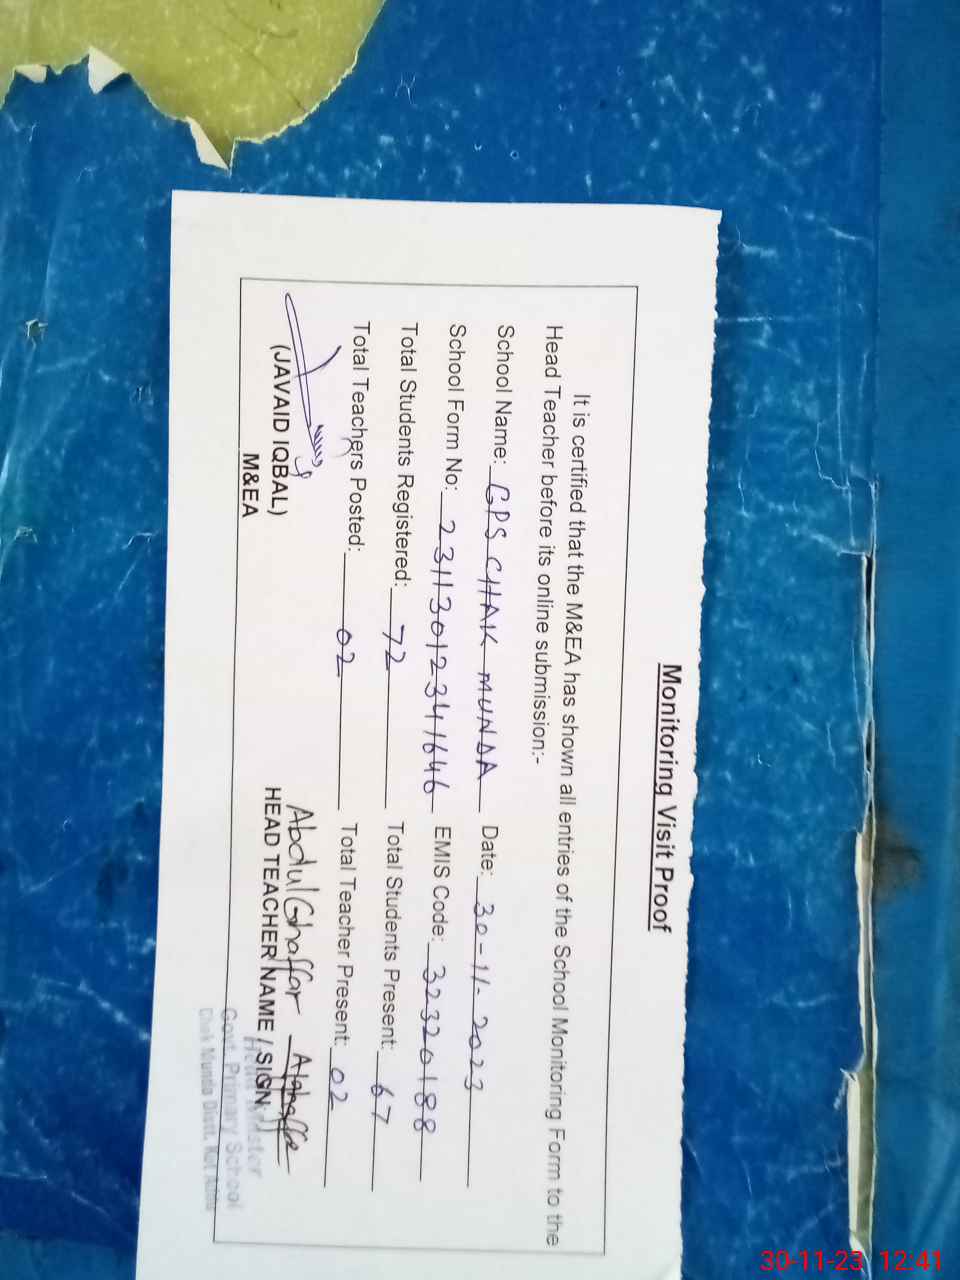 Monitoring Visit Proof
It is certified that the M&EA has shown all entries of the School Monitoring Form to the
Head Teacher before its online submission:-
School Name: GPS CHAK MUNDA Date: 30-11-2023
School Form No: 23113012341646 EMIS Code: 32320188
Total Students Registered: 72 Total Students Present: 67
Total Teachers Posted: 02 Total Teacher Present: 02
Abdul Ghaffar
(JAVAID IQBAL) HEAD TEACHER NAME / SIGN
M&EA
Head Master
Govt. Primary School
Chak Munda Distt.
30-11-23 12:41